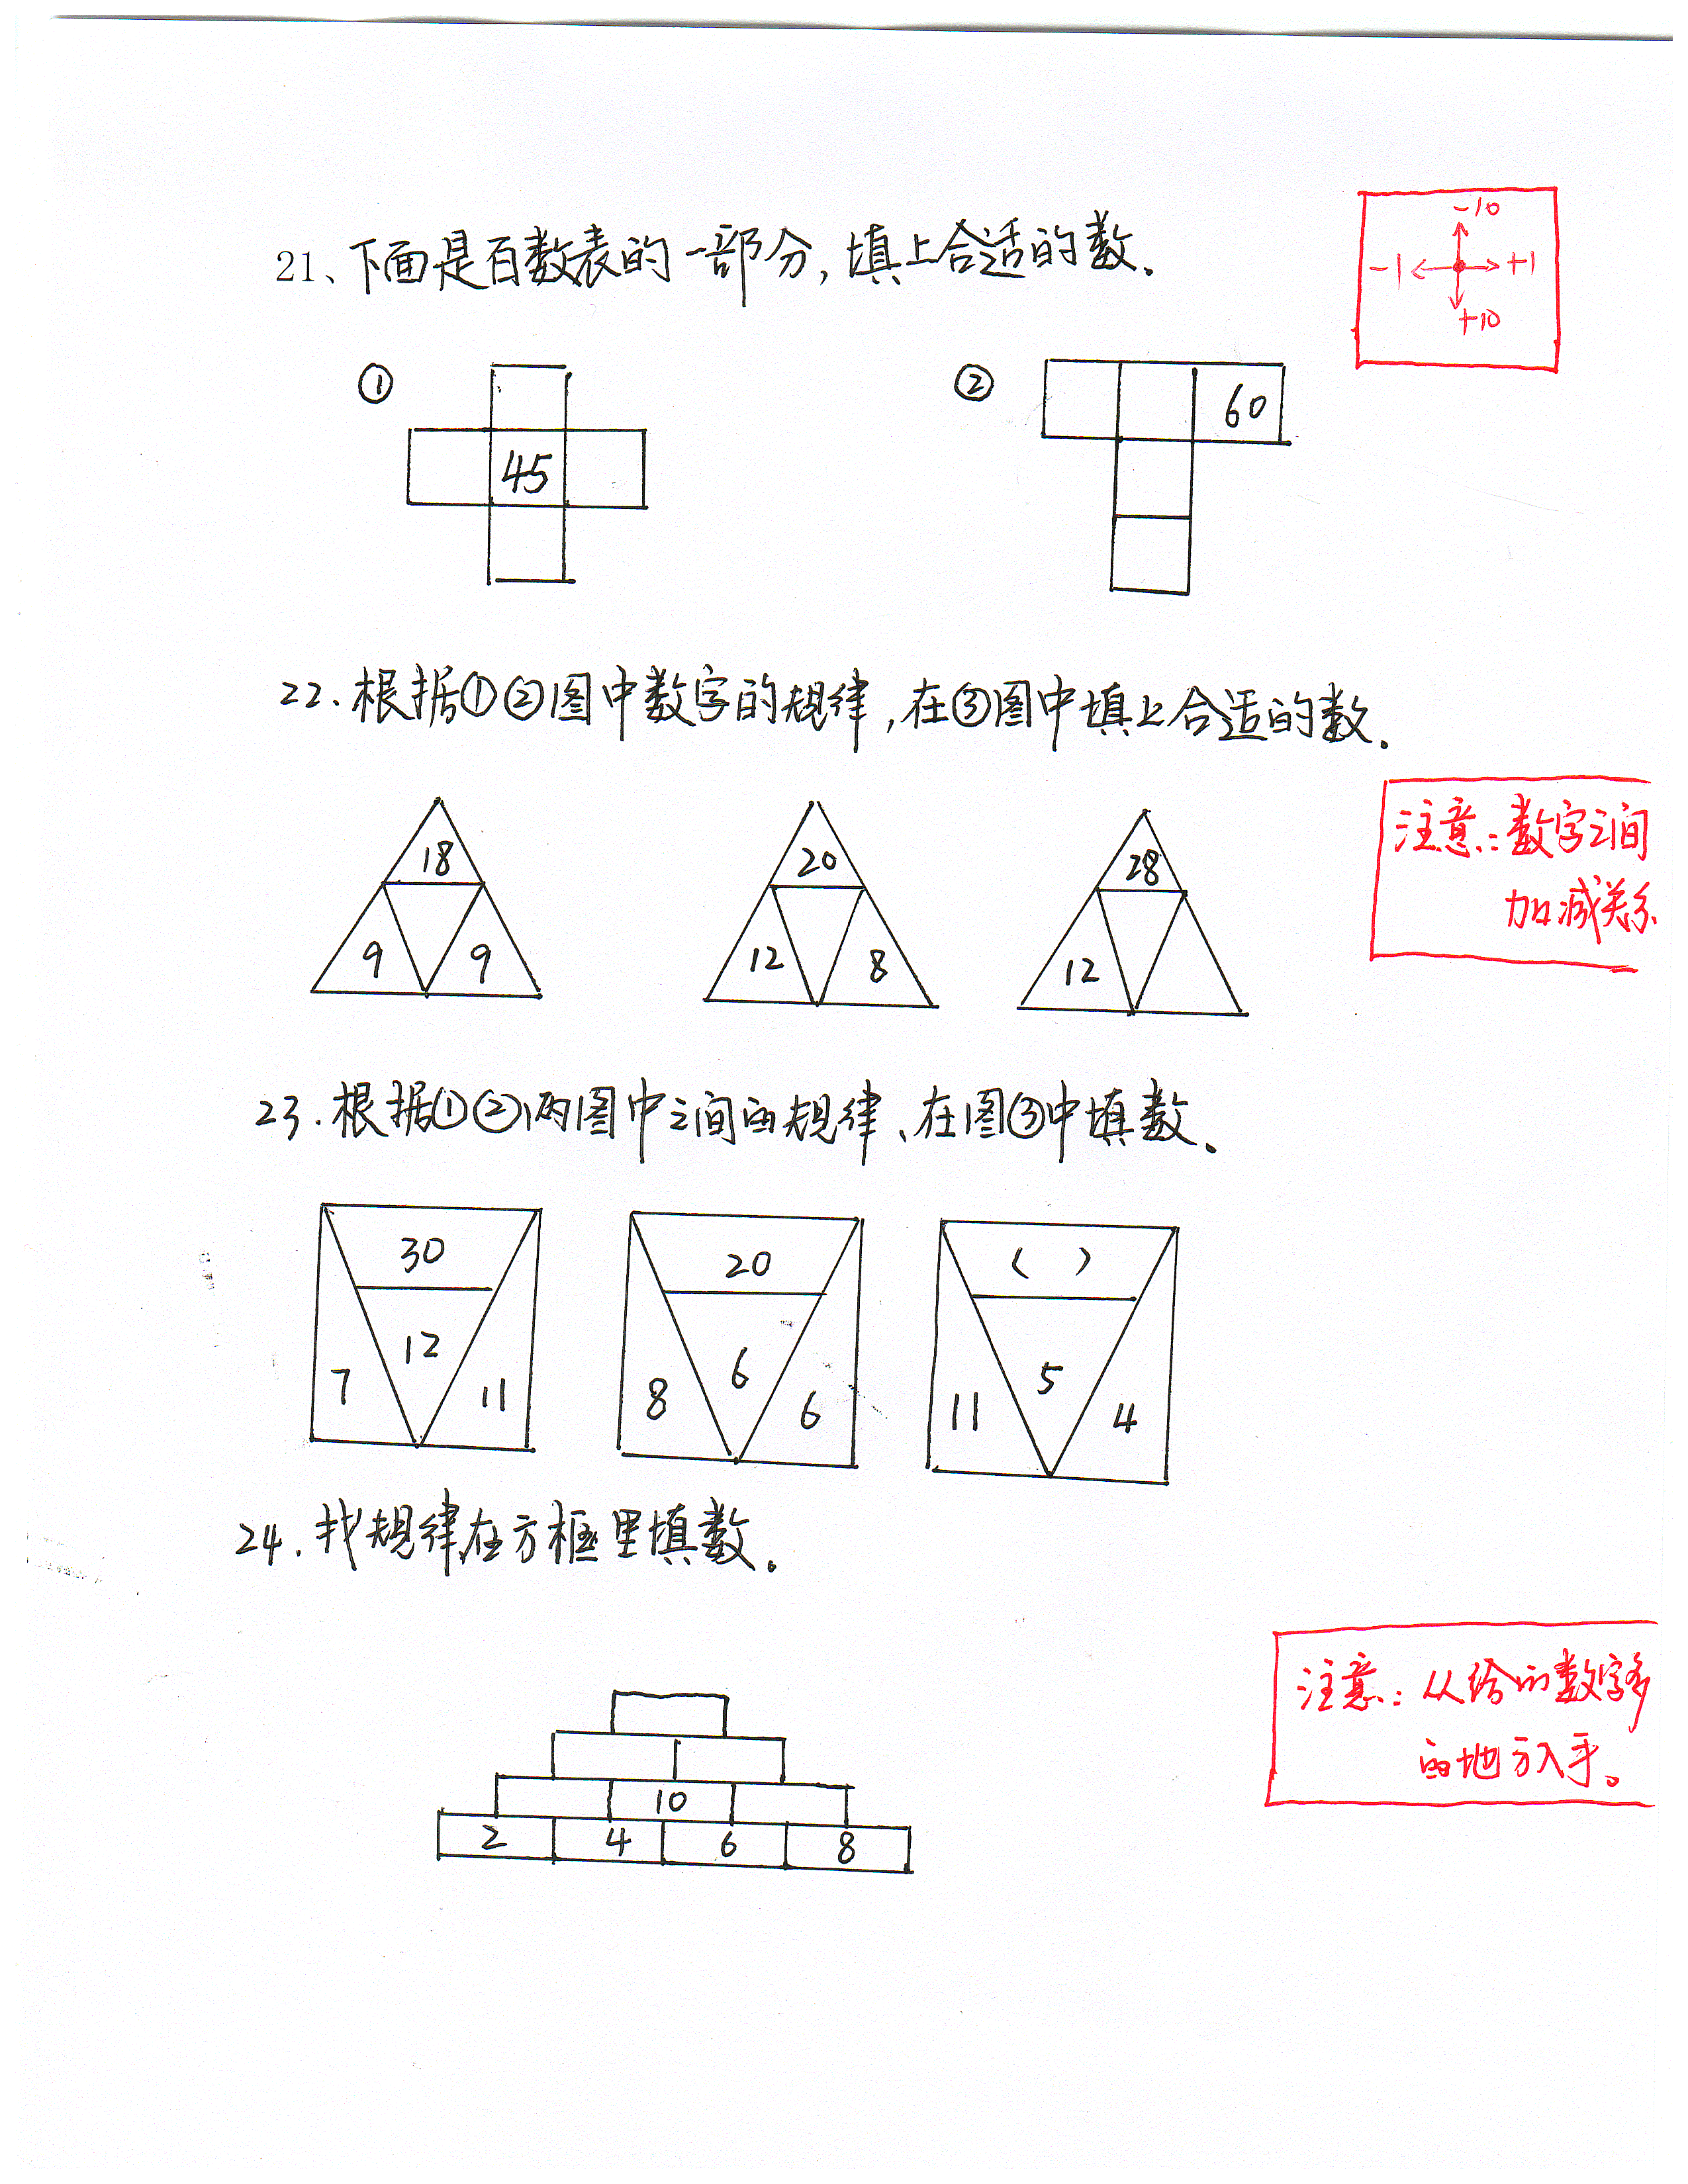 21、下面是百数表的一部分,填上合适的数.
-10
-1 +1
+10
① ②
60
45
22.根据①②图中数字的规律,在③图中填上合适的数.
注意:数字之间
加减关系
18 20 28
9 9 12 8 12
23.根据①②两图中之间的规律、在图③中填数。
30 20 ( )
12 6 5
7 11 8 6 11 4
24.找规律在方框里填数。
注意:从给的数字多
的地方入手。
10
2 4 6 8